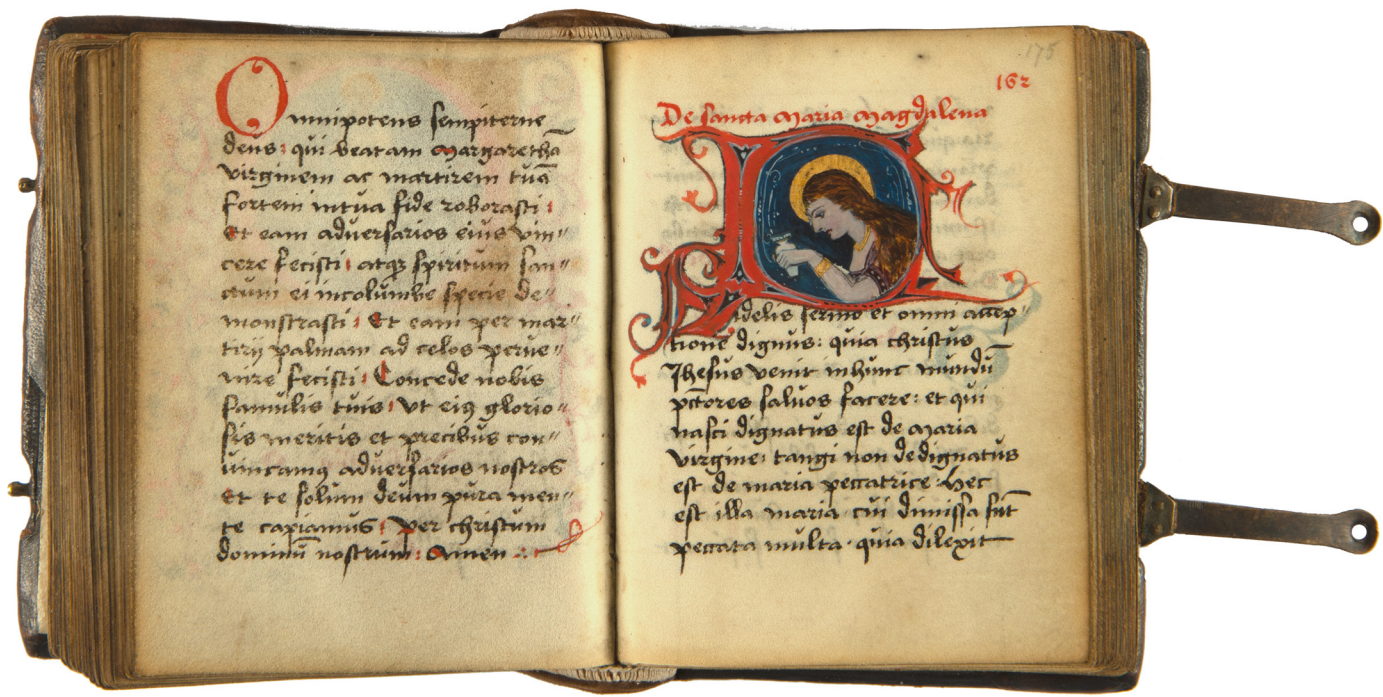 Omnipotens sempiterne
deus: qui beatam Margarethā
virginem ac martirem tuā
fortem in tua fide roborasti:
Et eam adversarios eius vin〃
cere fecisti: atq3 spiritum san〃
ctum ei in columbe specie de〃
monstrasti: Et eam per mar〃
tirij palmam ad celos perve〃
nire fecisti: Concede nobis
famulis tuis: Ut eiꝯ glorio〃
sis meritis et precibus con〃
vincamꝯ adversarios nostros
Et te solum deum pura men〃
te capiamus: Per christum
dominū nostrum: Amen
175
162
De sancta Maria Magdalena
Fidelis sermo et omni accep〃
tione dignus: quia christus
Jhesus venit in hunc mundū
pc̄tores salvos facere: et qui
nasci dignatus est de Maria
virgine: tangi non dedignatus
est de maria peccatrice. Hec
est illa maria cui dimissa sūt
peccata multa. quia dilexit